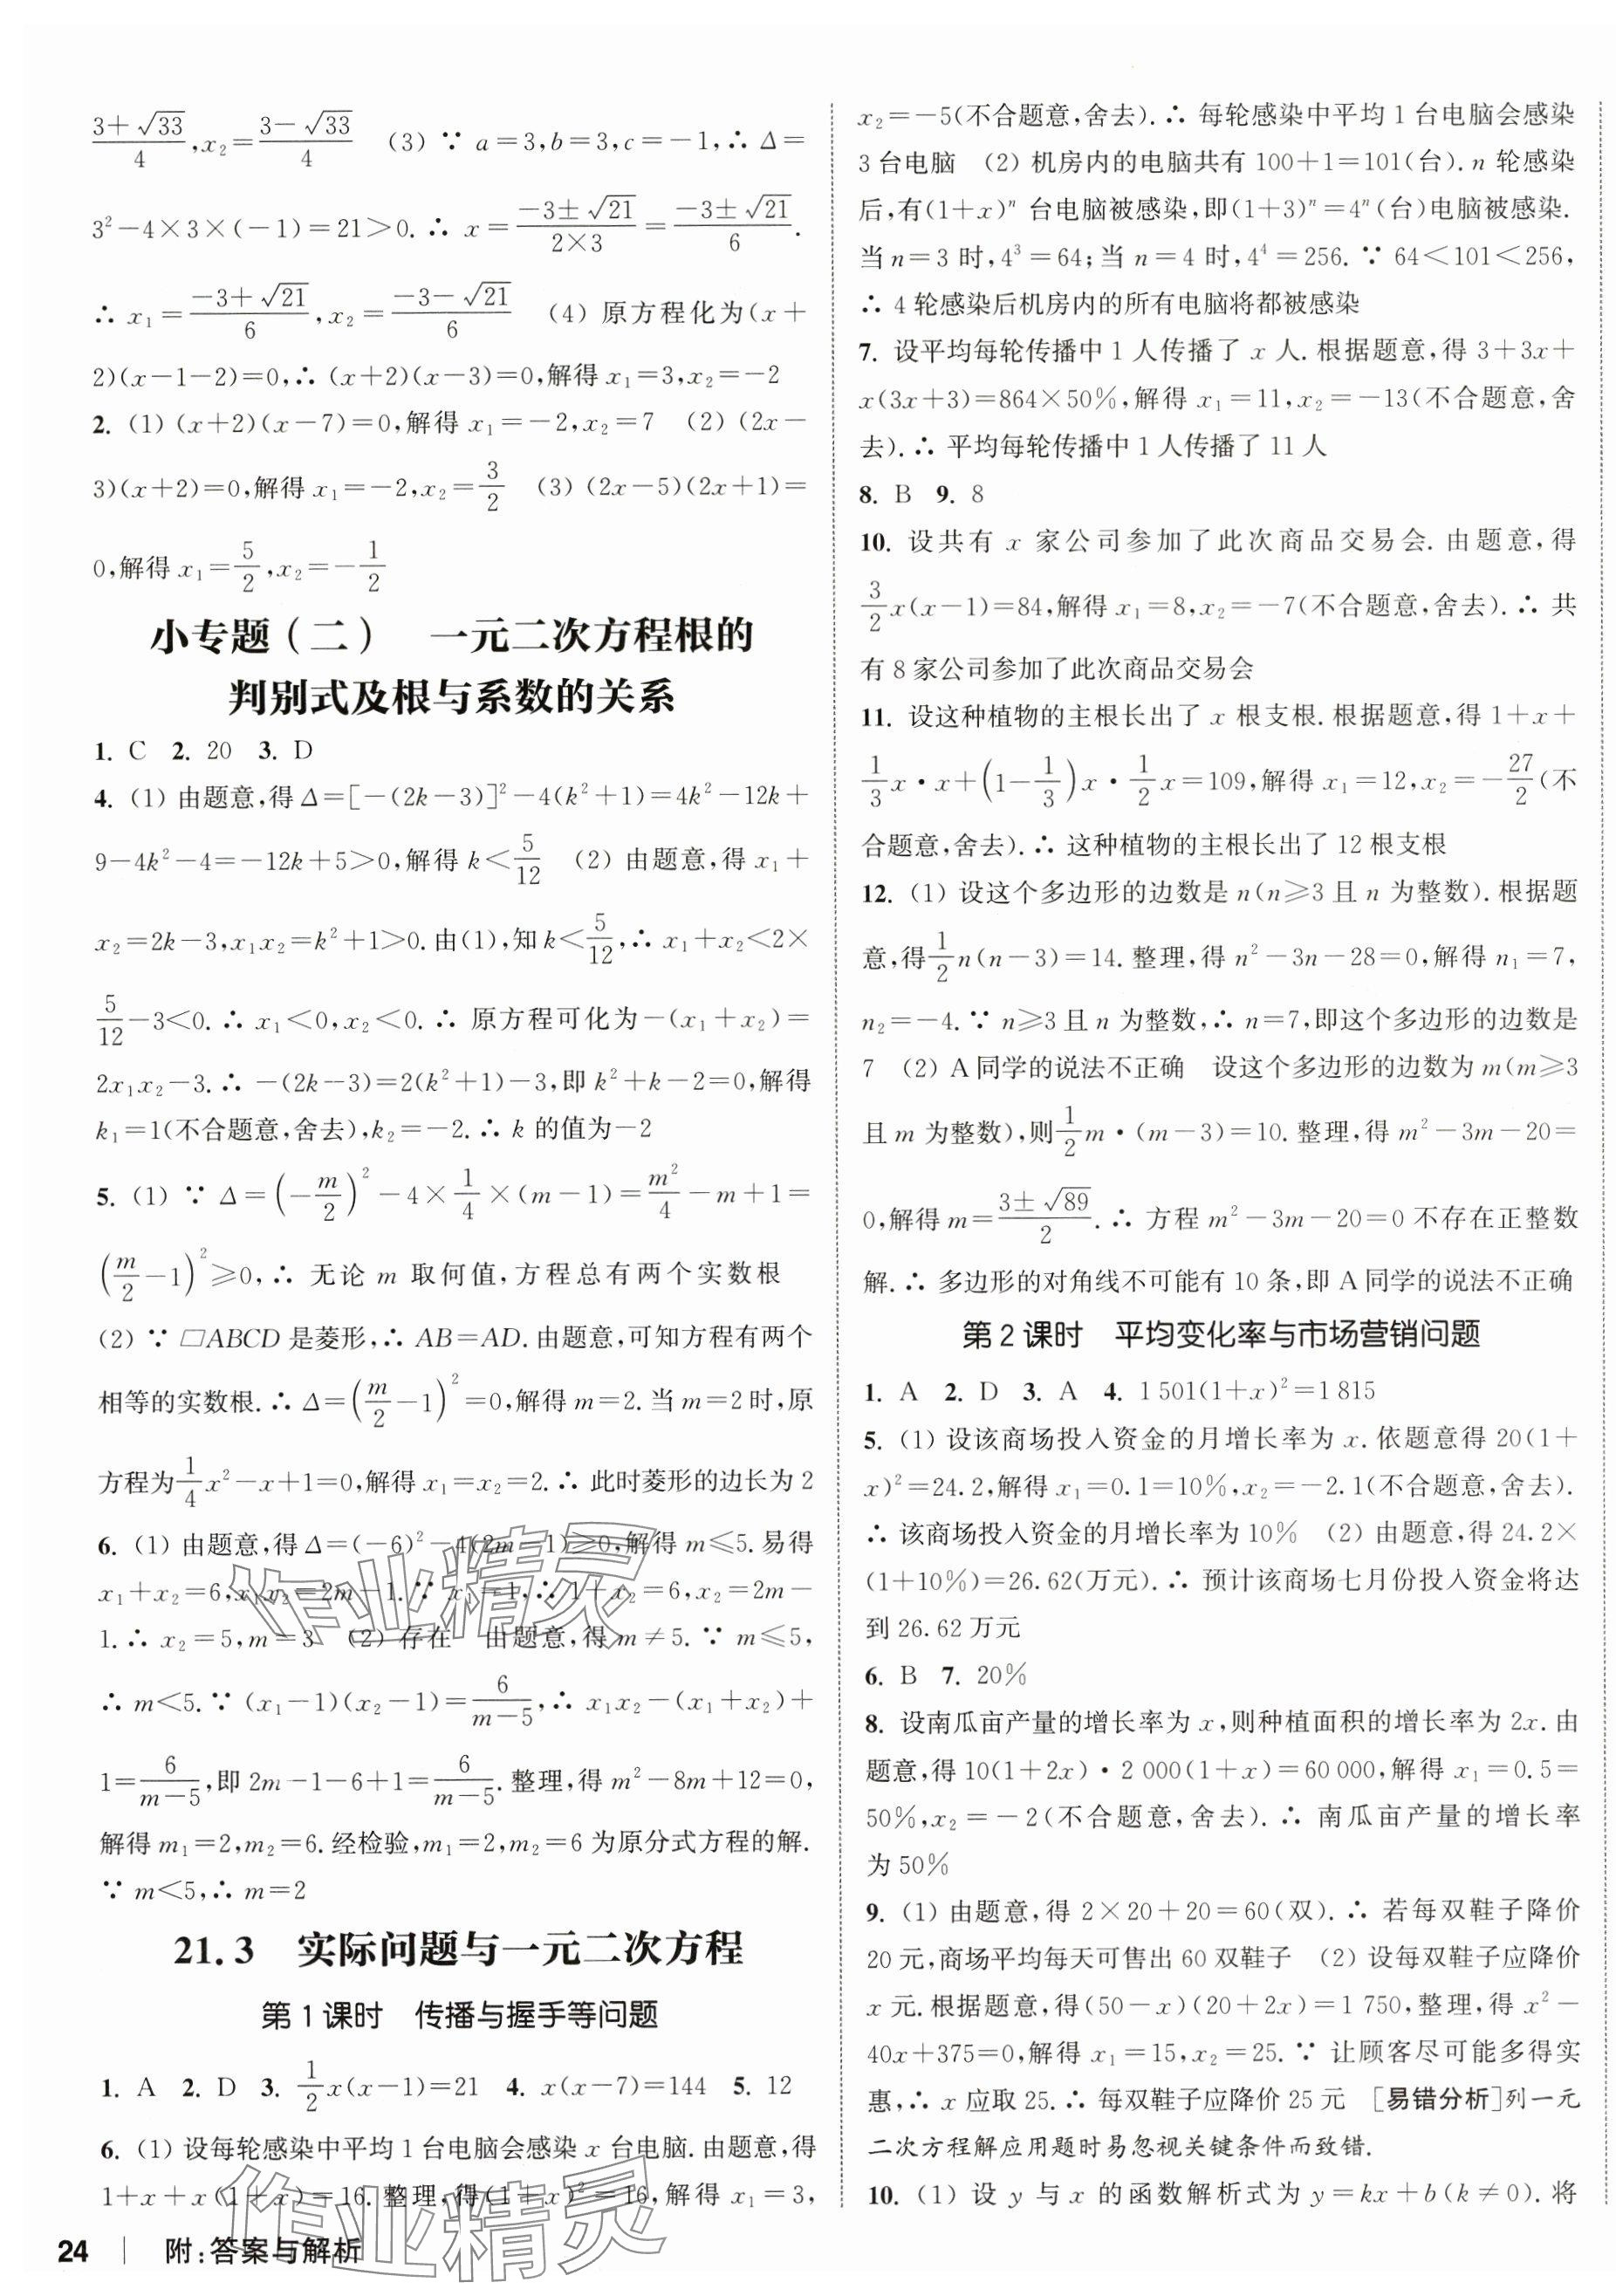 (3+√33)/4,x₂=(3-√33)/4 (3) ∵ a=3,b=3,c=-1,∴ Δ=
3²-4×3×(-1)=21>0.∴ x=(-3±√21)/(2×3)=(-3±√21)/6.
∴ x₁=(-3+√21)/6,x₂=(-3-√21)/6 (4) 原方程化为(x+
2)(x-1-2)=0,∴ (x+2)(x-3)=0,解得 x₁=3,x₂=-2
2. (1) (x+2)(x-7)=0,解得 x₁=-2,x₂=7 (2) (2x-
3)(x+2)=0,解得 x₁=-2,x₂=3/2 (3) (2x-5)(2x+1)=
0,解得 x₁=5/2,x₂=-1/2
小专题(二) 一元二次方程根的
判别式及根与系数的关系
1. C 2. 20 3. D
4. (1) 由题意,得 Δ=[-(2k-3)]²-4(k²+1)=4k²-12k+
9-4k²-4=-12k+5>0,解得 k<5/12 (2) 由题意,得 x₁+
x₂=2k-3,x₁x₂=k²+1>0.由(1),知 k<5/12,∴ x₁+x₂<2×
5/12-3<0.∴ x₁<0,x₂<0.∴ 原方程可化为-(x₁+x₂)=
2x₁x₂-3.∴ -(2k-3)=2(k²+1)-3,即 k²+k-2=0,解得
k₁=1(不合题意,舍去),k₂=-2.∴ k 的值为-2
5. (1) ∵ Δ=(-m/2)²-4×1/4×(m-1)=m²/4-m+1=
(m/2-1)²≥0,∴ 无论 m 取何值,方程总有两个实数根
(2) ∵ ▱ABCD 是菱形,∴ AB=AD.由题意,可知方程有两个
相等的实数根.∴ Δ=(m/2-1)²=0,解得 m=2.当 m=2 时,原
方程为1/4x²-x+1=0,解得 x₁=x₂=2.∴ 此时菱形的边长为 2
6. (1) 由题意,得 Δ=(-6)²-4(2m-1)≥0,解得 m≤5.易得
x₁+x₂=6,x₁x₂=2m-1.∵ x₁=1,∴ 1+x₂=6,x₂=2m-
1.∴ x₂=5,m=3 (2) 存在 由题意,得 m≠5.∵ m≤5,
∴ m<5.∵ (x₁-1)(x₂-1)=6/(m-5),∴ x₁x₂-(x₁+x₂)+
1=6/(m-5),即 2m-1-6+1=6/(m-5).整理,得 m²-8m+12=0,
解得 m₁=2,m₂=6.经检验,m₁=2,m₂=6 为原分式方程的解.
∵ m<5,∴ m=2
21.3 实际问题与一元二次方程
第1课时 传播与握手等问题
1. A 2. D 3. 1/2x(x-1)=21 4. x(x-7)=144 5. 12
6. (1) 设每轮感染中平均 1 台电脑会感染 x 台电脑.由题意,得
1+x+x(1+x)=16.整理,得(1+x)²=16,解得 x₁=3,
24 附:答案与解析
x₂=-5(不合题意,舍去).∴ 每轮感染中平均 1 台电脑会感染
3 台电脑 (2) 机房内的电脑共有 100+1=101(台).n 轮感染
后,有(1+x)ⁿ 台电脑被感染,即(1+3)ⁿ=4ⁿ(台)电脑被感染.
当 n=3 时,4³=64;当 n=4 时,4⁴=256.∵ 64<101<256,
∴ 4 轮感染后机房内的所有电脑将都被感染
7. 设平均每轮传播中 1 人传播了 x 人.根据题意,得 3+3x+
x(3x+3)=864×50%,解得 x₁=11,x₂=-13(不合题意,舍
去).∴ 平均每轮传播中 1 人传播了 11 人
8. B 9. 8
10. 设共有 x 家公司参加了此次商品交易会.由题意,得
3/2x(x-1)=84,解得 x₁=8,x₂=-7(不合题意,舍去).∴ 共
有 8 家公司参加了此次商品交易会
11. 设这种植物的主根长出了 x 根支根.根据题意,得 1+x+
1/3x·x+(1-1/3)x·1/2x=109,解得 x₁=12,x₂=-27/2(不
合题意,舍去).∴ 这种植物的主根长出了 12 根支根
12. (1) 设这个多边形的边数是 n(n≥3 且 n 为整数).根据题
意,得1/2n(n-3)=14.整理,得 n²-3n-28=0,解得 n₁=7,
n₂=-4.∵ n≥3 且 n 为整数,∴ n=7,即这个多边形的边数是
7 (2) A 同学的说法不正确 设这个多边形的边数为 m(m≥3
且 m 为整数),则1/2m·(m-3)=10.整理,得 m²-3m-20=
0,解得 m=(3±√89)/2.∴ 方程 m²-3m-20=0 不存在正整数
解.∴ 多边形的对角线不可能有 10 条,即 A 同学的说法不正确
第2课时 平均变化率与市场营销问题
1. A 2. D 3. A 4. 1 501(1+x)²=1 815
5. (1) 设该商场投入资金的月增长率为 x.依题意得 20(1+
x)²=24.2,解得 x₁=0.1=10%,x₂=-2.1(不合题意,舍去).
∴ 该商场投入资金的月增长率为 10% (2) 由题意,得 24.2×
(1+10%)=26.62(万元).∴ 预计该商场七月份投入资金将达
到 26.62 万元
6. B 7. 20%
8. 设南瓜亩产量的增长率为 x,则种植面积的增长率为 2x.由
题意,得 10(1+2x)·2 000(1+x)=60 000,解得 x₁=0.5=
50%,x₂=-2(不合题意,舍去).∴ 南瓜亩产量的增长率
为 50%
9. (1) 由题意,得 2×20+20=60(双).∴ 若每双鞋子降价
20 元,商场平均每天可售出 60 双鞋子 (2) 设每双鞋子应降价
x 元.根据题意,得(50-x)(20+2x)=1 750,整理,得 x²-
40x+375=0,解得 x₁=15,x₂=25.∵ 让顾客尽可能多得实
惠,∴ x 应取 25.∴ 每双鞋子应降价 25 元 [易错分析]列一元
二次方程解应用题时易忽视关键条件而致错.
10. (1) 设 y 与 x 的函数解析式为 y=kx+b(k≠0).将
作业精灵
作业精灵